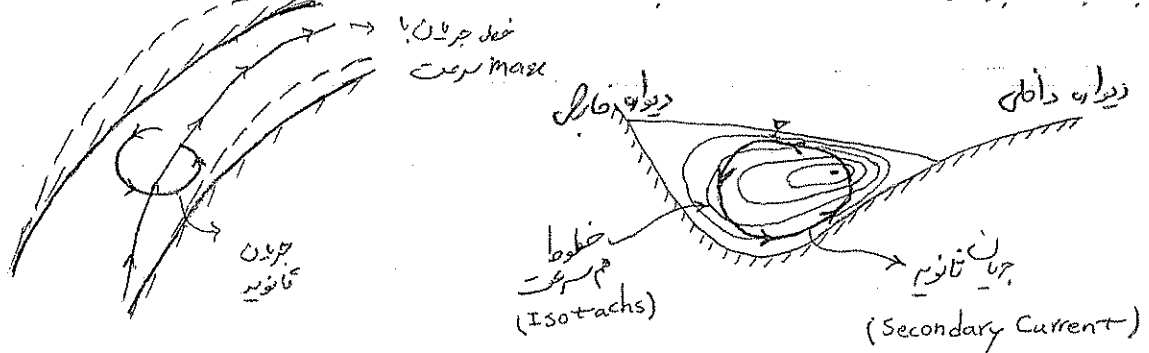 خط جریان با
سرعت max
جریان
ثانویه
دیواره خارجی
دیواره داخلی
خطوط
هم سرعت
(Isotachs)
جریان ثانویه
(Secondary Current)